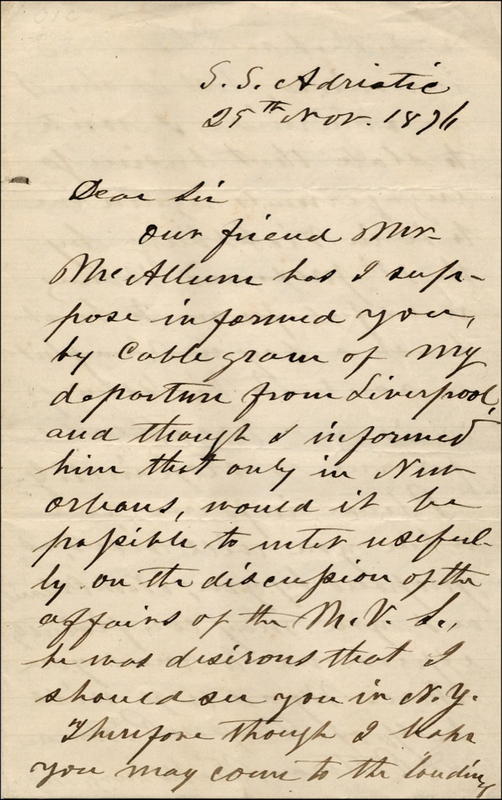 S. S. Adriatic
25th Nov. 1876
Dear Sir
Our friend Mr
McAllum has I sup-
pose informed you,
by Cable gram of my
departure from Liverpool,
and though I informed
him that only in New
Orleans, would it be
possible to enter useful-
ly on the discussion of the
affairs of the M. V. S.,
he was desirous that I
should see you in N.Y.
Therefore though I hope
you may come to the landing